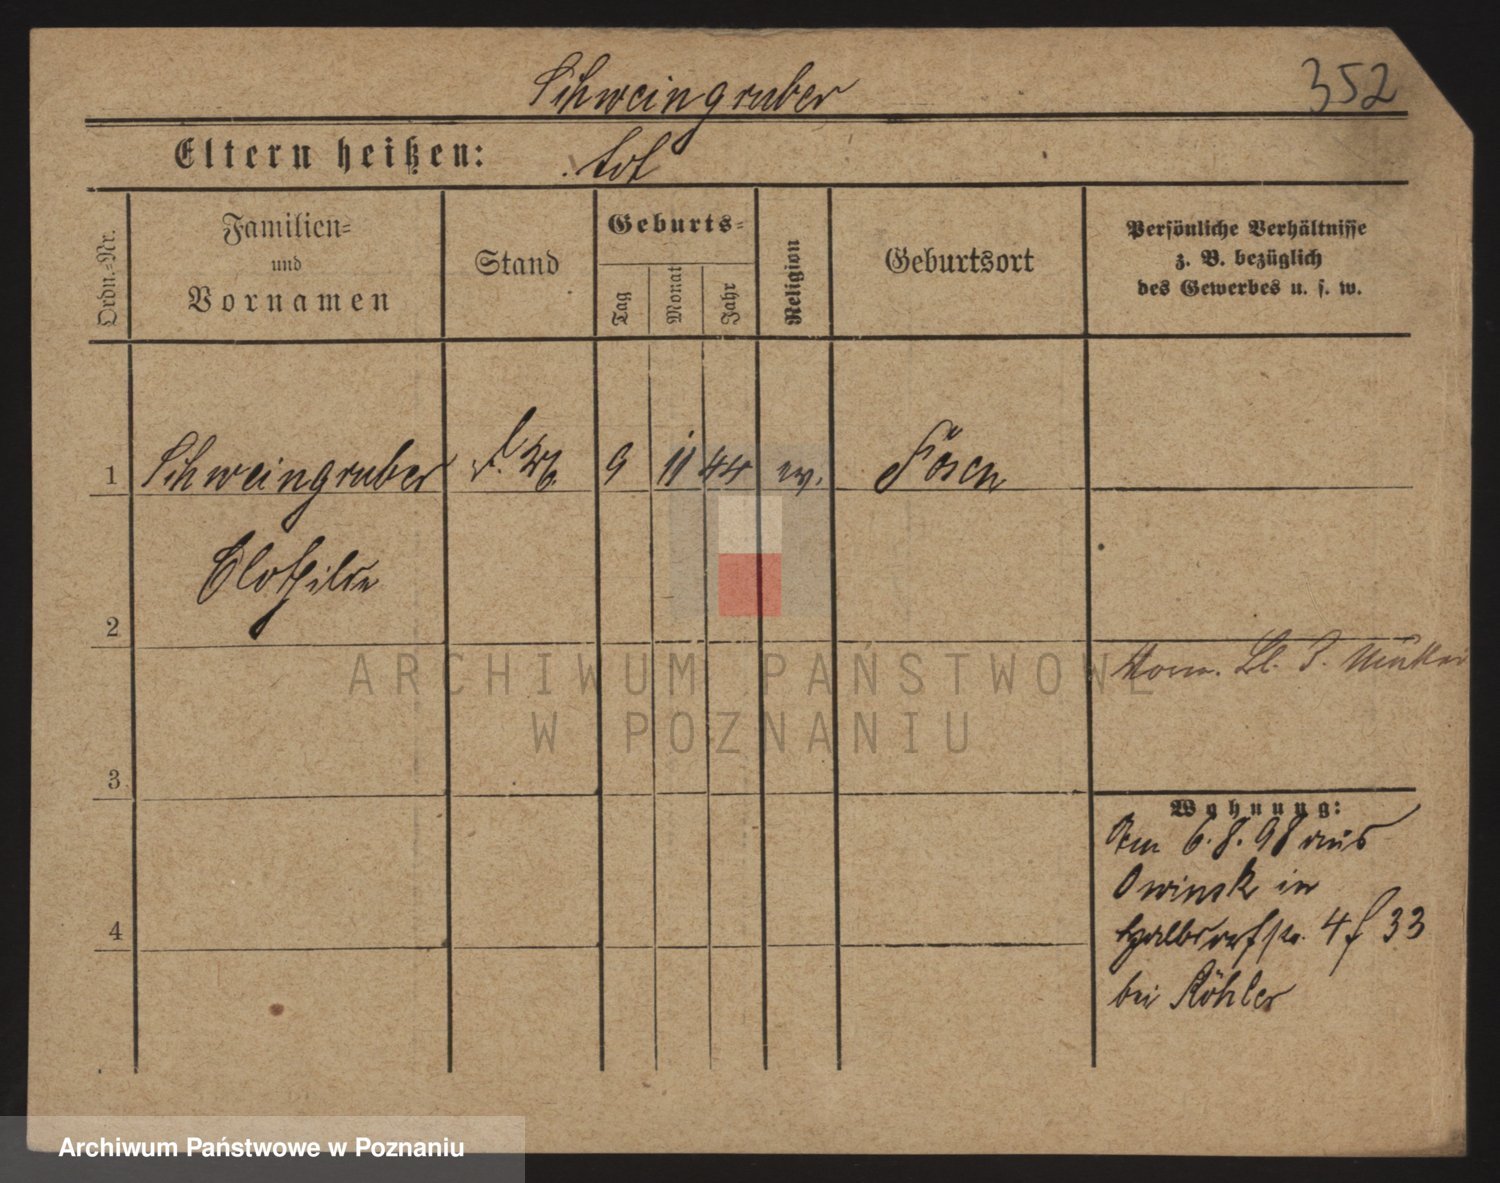 352
Schweingruber
Eltern heißen: tot
Ordn.-Nr.
Familien-
und
Vornamen
Stand
Geburts-
Tag
Monat
Jahr
Religion
Geburtsort
Persönliche Verhältnisse
z. B. bezüglich
des Gewerbes u. s. w.
1 Schweingruber 9 11 44 ev. Posen
Clothilde
2
3
4
Wohnung:
Am 6.8.98 aus
Owinsk in
Halbdorfstr. 4 33
bei Köhler
ARCHIWUM PAŃSTWOWE
W POZNANIU
Archiwum Państwowe w Poznaniu